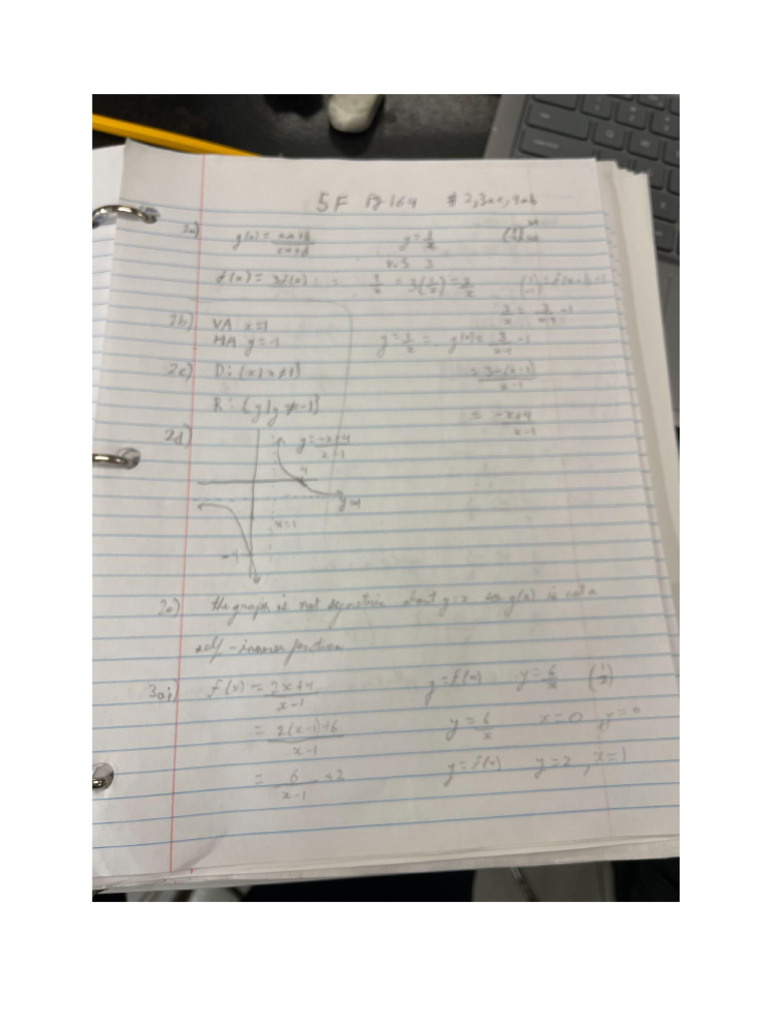 5F Pg 164 # 2, 3ac, 4ab
2a) g(x) = ax+b / cx+d y = 1/x
V.S 3
f(x) = 3f(x) 1/x = 3(1/x) = 3/x
3/x = 3/x-1 -1
2b) VA x=1
HA y=-1 y = 1/x = g(x) = 3/x-1 -1
2c) D: {x|x≠1} = 3-(x-1) / x-1
R: {y|y≠-1} = -x+4 / x-1
2d) y = -x+4 / x-1
4
y=-1
x=1
-4
2e) the graph is not symetric about y=x so g(x) is not a
self-inverse function
3ai) f(x) = 2x+4 / x-1 y=f(x) y = 6/x (1/2)
= 2(x-1)+6 / x-1 y = 6/x x=0 y=0
= 6/x-1 +2 y=f(x) y=2, x=1